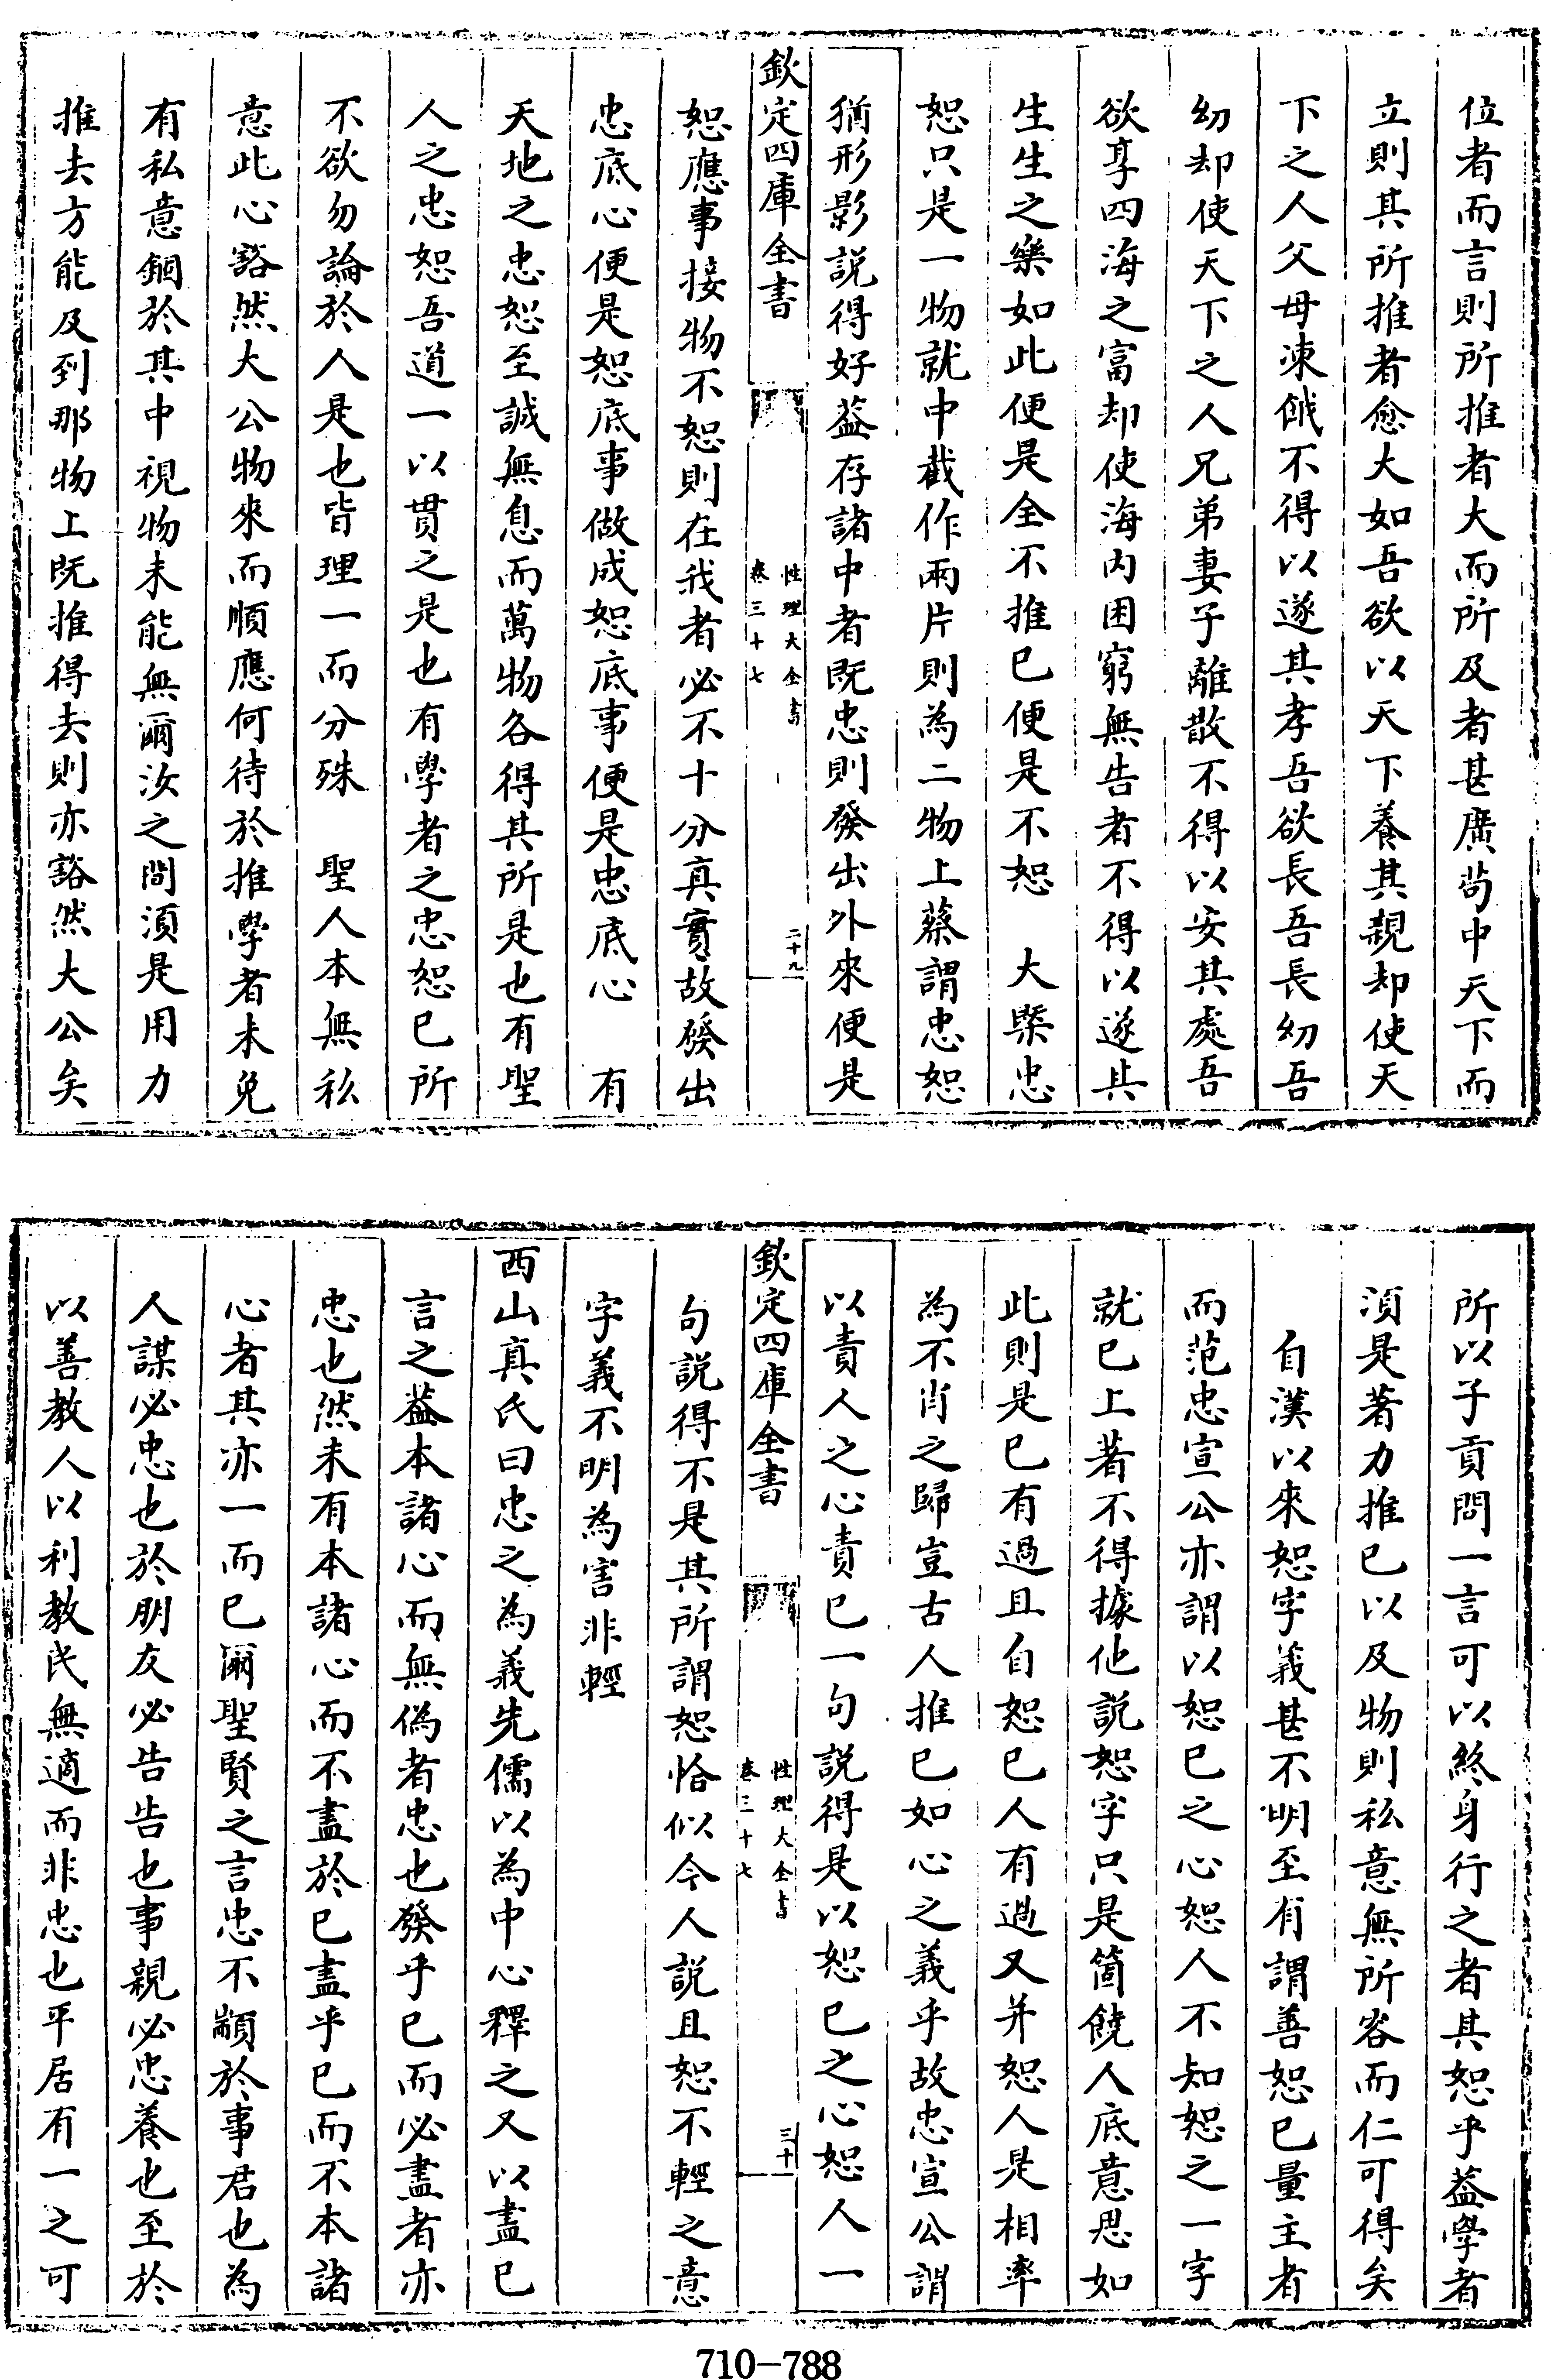 位者而言則所推者大而所及者甚廣茍中天下而
立則其所推者愈大如吾欲以天下養其親却使天
下之人父母凍餓不得以遂其孝吾欲長吾長幼吾
幼却使天下之人兄弟妻子離散不得以安其處吾
欲享四海之富却使海内困窮無告者不得以遂其
生生之樂如此便是全不推已便是不恕　大槩忠
恕只是一物就中截作兩片則為二物上蔡謂忠恕
猶形影説得好葢存諸中者既忠則發出外來便是
欽定四庫全書
性理大全書
卷三十七
二十九
恕應事接物不恕則在我者必不十分真實故發出
忠底心便是恕底事做成恕底事便是忠底心　有
天地之忠恕至誠無息而萬物各得其所是也有聖
人之忠恕吾道一以貫之是也有學者之忠恕已所
不欲勿論於人是也皆理一而分殊　聖人本無私
意此心豁然大公物來而順應何待於推學者未免
有私意錮於其中視物未能無爾汝之間須是用力
推去方能及到那物上既推得去則亦豁然大公矣
所以子貢問一言可以終身行之者其恕乎葢學者
須是著力推已以及物則私意無所容而仁可得矣
自漢以來恕字義甚不明至有謂善恕已量主者
而范忠宣公亦謂以恕已之心恕人不知恕之一字
就已上著不得據他説恕字只是箇饒人底意思如
此則是已有過且自恕已人有過又并恕人是相率
為不肖之歸豈古人推已如心之義乎故忠宣公謂
以責人之心責已一句説得是以恕已之心恕人一
欽定四庫全書
性理大全書
卷三十七
三十
句説得不是其所謂恕恰似今人説且恕不輕之意
字義不明為害非輕
西山真氏曰忠之為義先儒以為中心釋之又以盡已
言之葢本諸心而無偽者忠也發乎已而必盡者亦
忠也然未有本諸心而不盡於已盡乎已而不本諸
心者其亦一而已爾聖賢之言忠不顓於事君也為
人謀必忠也於朋友必告告也事親必忠養也至於
以善教人以利教民無適而非忠也平居有一之可
710-788